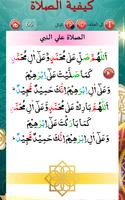 كيفية الصلاة
الصلاة علي النبي
اللَّهُمَّ صَلِّ عَلَى مُحَمَّدٍ
وَعَلَى آلِ مُحَمَّدٍ
كَمَا صَلَّيْتَ عَلَى إِبْرَهِيمَ
وَعَلَى آلِ إِبْرَهِيمَ
اللَّهُمَّ بَارِكْ عَلَى مُحَمَّدٍ
وَعَلَى آلِ مُحَمَّدٍ كَمَا بَارَكْتَ
عَلَى إِبْرَهِيمَ وَعَلَى آلِ إِبْرَهِيمَ